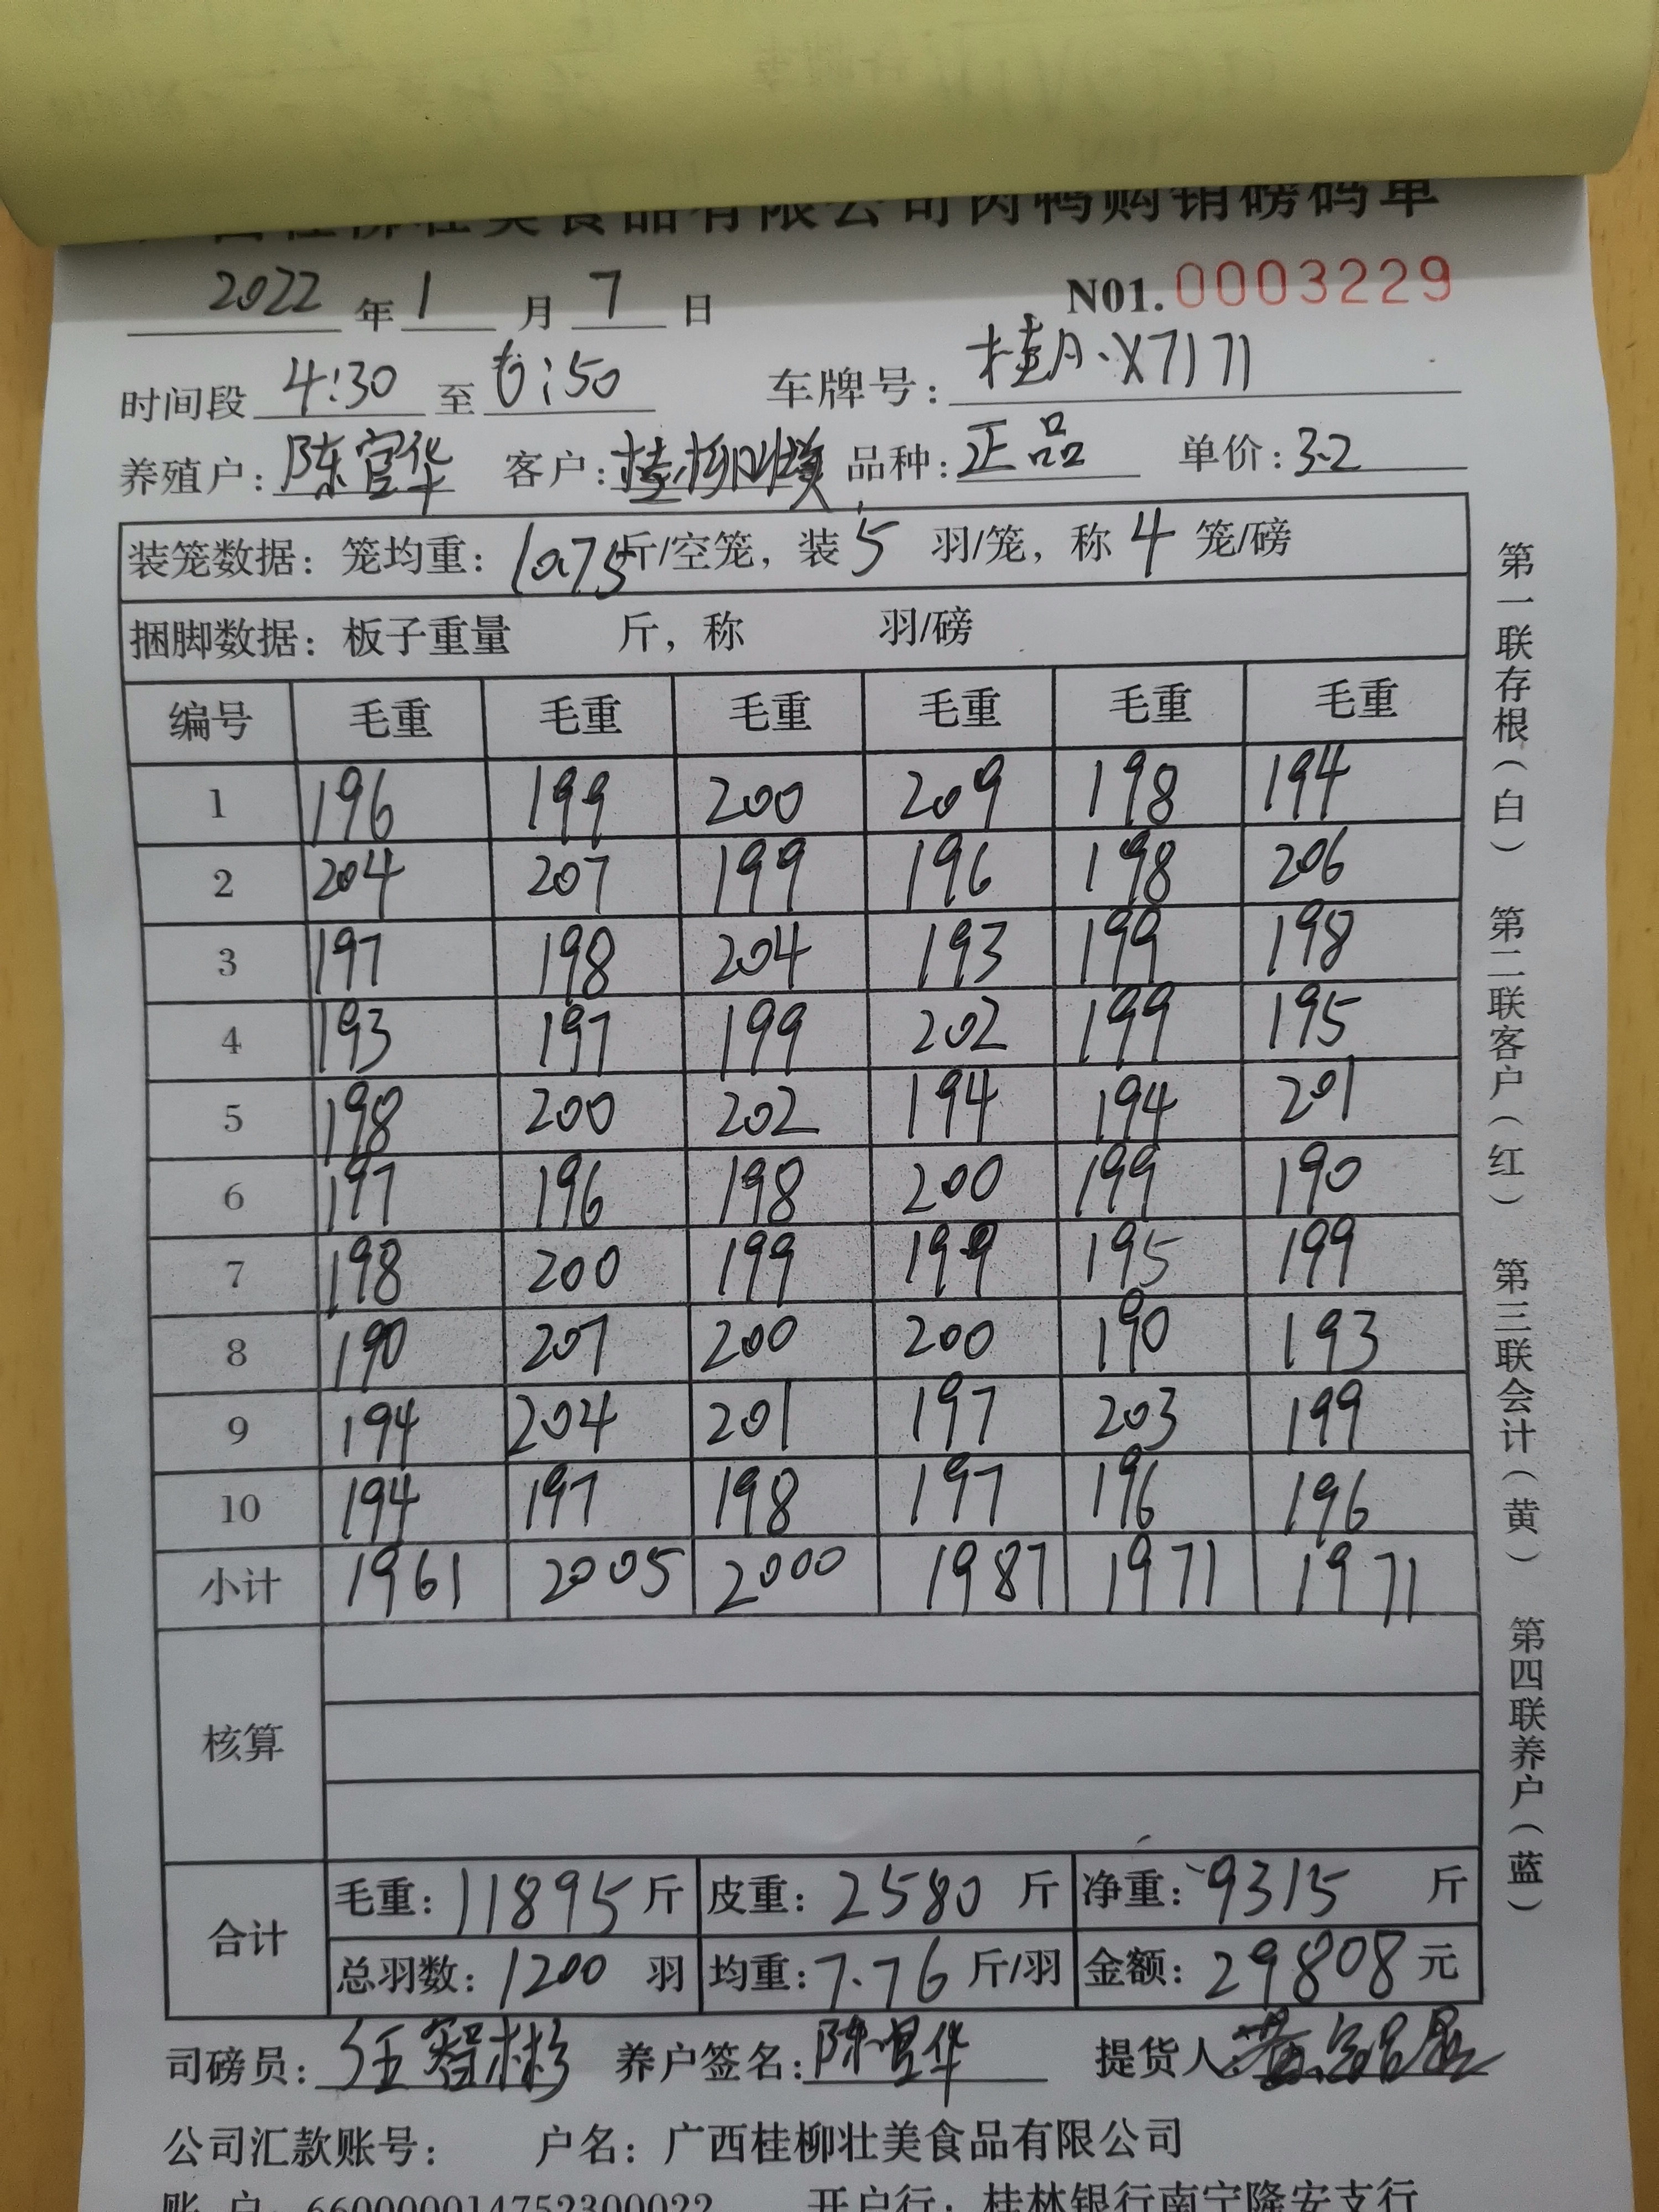 广西桂柳壮美食品有限公司肉鸭购销磅码单
2022 年 1 月 7 日 N01. 0003229
时间段 4:30 至 6:50 车牌号: 桂A·X7171
养殖户: 陈官华 客户: 桂柳壮美 品种: 正品 单价: 3.2
装笼数据: 笼均重: 10.75 斤/空笼, 装 5 羽/笼, 称 4 笼/磅
捆脚数据: 板子重量 斤, 称 羽/磅
编号 毛重 毛重 毛重 毛重 毛重 毛重
1 196 199 200 209 198 194
2 204 207 199 196 198 206
3 197 198 204 193 199 198
4 193 197 199 202 199 195
5 198 200 202 194 194 201
6 197 196 198 200 199 190
7 198 200 199 199 195 199
8 190 207 200 200 190 193
9 194 204 201 197 203 199
10 194 197 198 197 196 196
小计 1961 2005 2000 1987 1971 1971
核算
合计 毛重: 11895 斤 皮重: 2580 斤 净重: 9315 斤
总羽数: 1200 羽 均重: 7.76 斤/羽 金额: 29808 元
司磅员: 智彬 养户签名: 陈官华 提货人:
公司汇款账号: 户名: 广西桂柳壮美食品有限公司
账 户: 660000014752300022 开户行: 桂林银行南宁隆安支行
第一联存根(白) 第二联客户(红) 第三联会计(黄) 第四联养户(蓝)